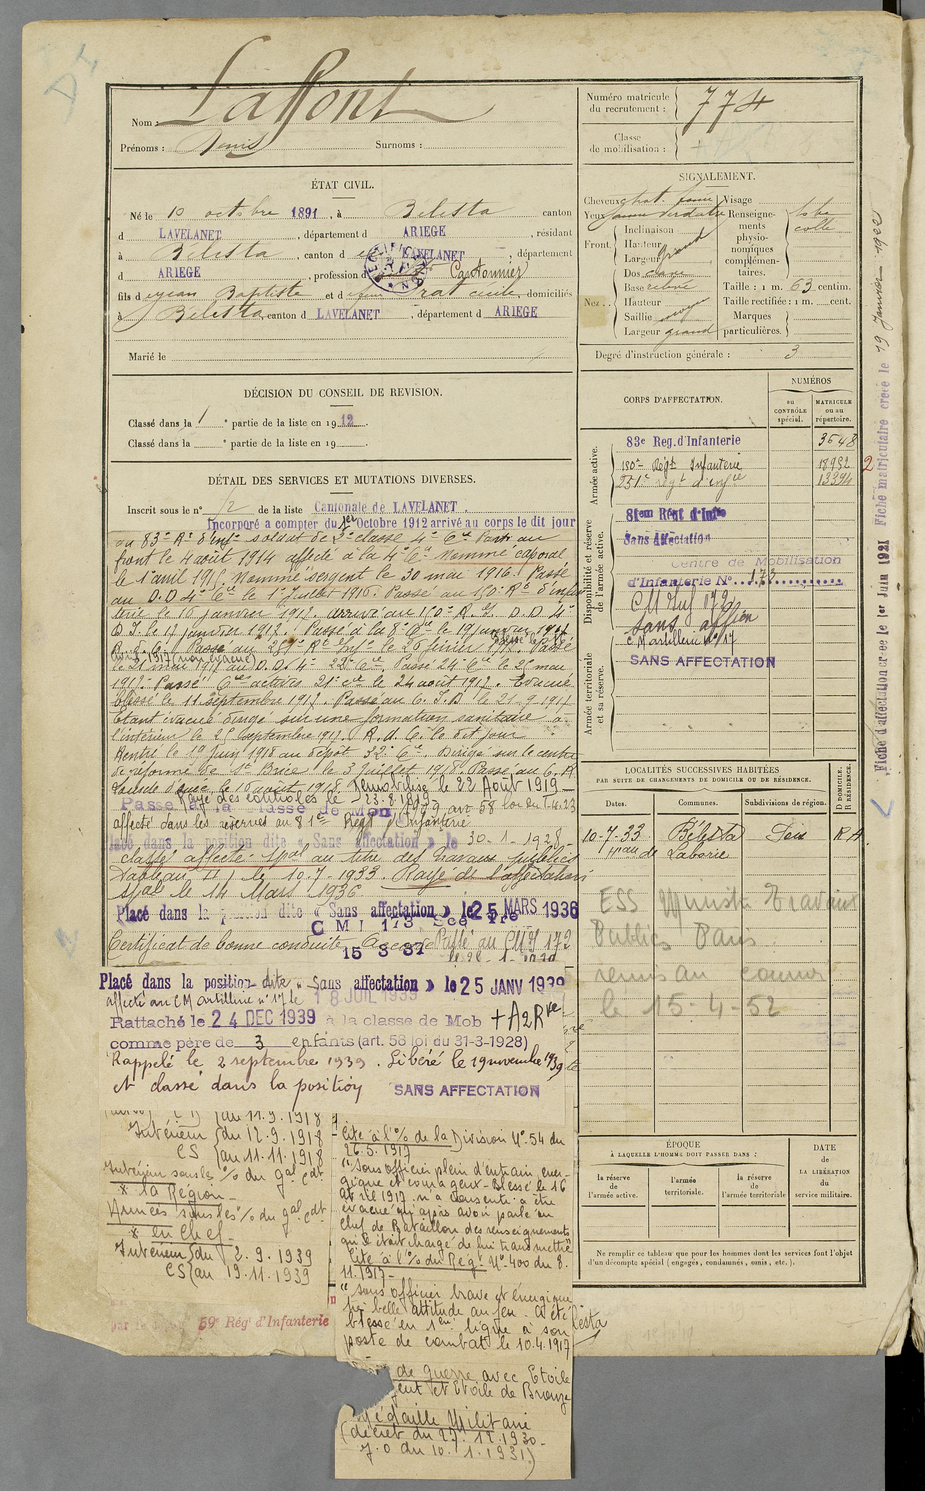 Nom : Laffont
Prénoms : Denis Surnoms :
ÉTAT CIVIL.
Né le 10 octobre 1891, à Bélesta canton
d LAVELANET, département d ARIEGE, résidant
à Bélesta, canton d LAVELANET, département
d ARIEGE, profession de Cantonnier
fils de Jean Baptiste et de Cécile, domiciliés
à Bélesta, canton d LAVELANET, département d ARIEGE
Marié le
DÉCISION DU CONSEIL DE REVISION.
Classé dans la 1 e partie de la liste en 1912.
Classé dans la e partie de la liste en 19 .
DÉTAIL DES SERVICES ET MUTATIONS DIVERSES.
Inscrit sous le n° 12 de la liste Cantonale de LAVELANET
Incorporé a compter du 1er Octobre 1912 arrivé au corps le dit jour
au 83e Rt d'Infie soldat de 2e classe 4e Cie Parti au
front le 4 août 1914 affecté à la 4e Cie Nommé caporal
le 1er avril 1916. Nommé sergent le 30 mai 1916. Passé
au D.D. 4e Cie le 1er Juillet 1916. Passé au 150e Rt d'infan
terie le 16 janvier 1917. arrivé au 150e R.I. D.D 4e
le 17 janvier 1917. Passé à la 8e Cie le 19 janvier 1917
Passé au 251e Rt Infie le 26 février 1917. Passé
le 21 mai 1917 au D.D. 4e 23e Cie. Passé 24e Cie le 26 mai
1917. Passé 6e Cie actives 21e Cie le 24 août 1917. Evacué
blessé le 11 septembre 1917. Passé au C.I.D le 21.9.1917
Etant évacué dirigé sur une formation sanitaire à
l'intérieur le 25 septembre 1917. R.d.C. le dit jour
Rentré le 19 Juin 1918 au dépôt 32e Cie. Dirigé sur le centre
de réforme de St Brice le 3 Juillet 1918. Passé au 6. R
le 16 août 1918. Démobilisé le 22 Août 1919
Rayé des contrôles le 23.8.1919
Passe à la classe de Mob 1909 art 58 loi du 1.4.23
affecté dans les réserves au 81e Régt d'Infanterie
Placé dans la position dite « Sans affectation » le 30-1-1928
classé affecté spal au titre des Travaux publics
Tableau II) le 10.7-1933. Rayé de l'affectation
spale le 14 Mars 1936
Placé dans la position dite « Sans affectation » le 25 MARS 1936
C M I 173
Certificat de bonne conduite Accordé Passé au CMI 172
15 3 37
Placé dans la position dite « Sans affectation » le 25 JANV 1939
affecté au CM artillerie n° 17 le 18 JUIL 1939
Rattaché le 24 DEC 1939 à la classe de Mob + A2Rve
comme père de 3 enfants (art. 58 loi du 31-3-1928)
Rappelé le 2 septembre 1939. Libéré le 19 novembre 1939
et classé dans la position SANS AFFECTATION
au 11.9.1918
Intérieur du 12.9.1918
CS au 11.11.1918
Intérieur sous les % du gal cdt
* la Région
Armées sous les % du gal cdt
* en Chef
Intérieur du 2.9.1939
CS au 19.11.1939
59e Rég' d'Infanterie
Cité à l'% de la Division N° 54 du
26.5.1917
"Sous officier plein d'entrain, éner-
gique et courageux. Blessé le 16
avril 1917. n'a consenti à être
évacué qu'après avoir parlé au
chef de Bataillon des renseignements
qu'il était chargé de lui transmettre"
Cité à l'% du Régt N° 400 du 8.
11.1917
"Sous officier brave et énergique
très belle attitude au feu. A été
blessé en 1ère ligne à son
poste de combat le 10.4.1917
de guerre avec Etoile
et Etoile de Bronze
Médaille Militaire
(décret du 27.12.1930
J.O du 10.1.1931)
Numéro matricule du recrutement : 774
Classe de mobilisation :
SIGNALEMENT.
Cheveux chat. foncé
Yeux jaune verdâtre
Front. Inclinaison
Hauteur
Largeur grand
Nez. Dos
Base relevé
Hauteur
Saillie
Largeur grand
Visage
Renseignements physionomiques complémentaires. lobe collé
Taille : 1 m. 63 centim.
Taille rectifiée : 1 m. cent.
Marques particulières.
Degré d'instruction générale : 3
CORPS D'AFFECTATION.
NUMÉROS
au CONTRÔLE spécial.
MATRICULE ou au répertoire.
Armée active.
83e Reg. d'Infanterie 3648
150e Régt Infanterie 18952
251e régt d'infie 13394
Disponibilité et réserve de l'armée active.
81em Régt d'Infie
Sans Affectation
Centre de Mobilisation
d'Infanterie N° 173
CM Inf 172
Sans affon
C M artillerie n° 17
SANS AFFECTATION
Armée territoriale et sa réserve.
LOCALITÉS SUCCESSIVES HABITÉES
PAR SUITE DE CHANGEMENTS DE DOMICILE OU DE RÉSIDENCE.
Dates. Communes. Subdivisions de région. D DOMICILE. R RÉSIDENCE.
10-7-33 Bélesta Foix R
hau de Laborie
ESS Ministre Travaux
Publics Paris
remis au courrier
le 15-4-52
ÉPOQUE
À LAQUELLE L'HOMME DOIT PASSER DANS :
la réserve de l'armée active.
l'armée territoriale.
la réserve de l'armée territoriale
DATE de LA LIBÉRATION du service militaire.
Ne remplir ce tableau que pour les hommes dont les services font l'objet
d'un décompte spécial (engagés, condamnés, omis, etc.).
Fiche d'affectation créée le 1er Juin 1921 Fiche matriculaire créée le 19 Janvier 1922